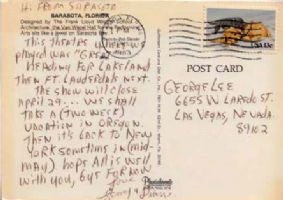 Hi From Sarasota
SARASOTA, FLORIDA
Designed by The Frank Lloyd Wright
Architecture, the Van Wezel Hall for the Performing
Arts sits like a jewel on Sarasota Bay.
This theatre where we
played was "GREAT"
Heading for Lakeland
Then Ft. Lauderdale next.
The show will close
April 29... We shall
take a (two week)
vacation in Oregon.
Then it's back to New
York sometime in (mid-
May) hope All is well
with you, bye for now
Love
USA 13c
POST CARD
George Lee
6655 W. Laredo St.
Las Vegas, Nevada.
89102